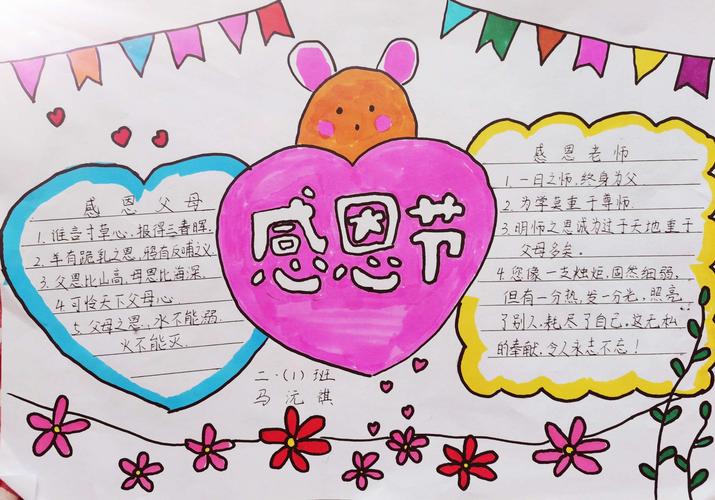 感恩节
感恩父母
1.谁言寸草心,报得三春晖.
2.羊有跪乳之恩,鸦有反哺之义.
3.父恩比山高,母恩比海深.
4.可怜天下父母心.
5.父母之恩,水不能溺.
火不能灭.
感恩老师
1.一日之师,终身为父.
2.为学莫重于尊师.
3.明师之恩诚为过于天地,重于
父母多矣。
4.您像一支烛炬,固然细弱,
但有一分热,发一分光,照亮
了别人,耗尽了自己。这无私
的奉献,令人永志不忘!
二.(1)班
马沅祺